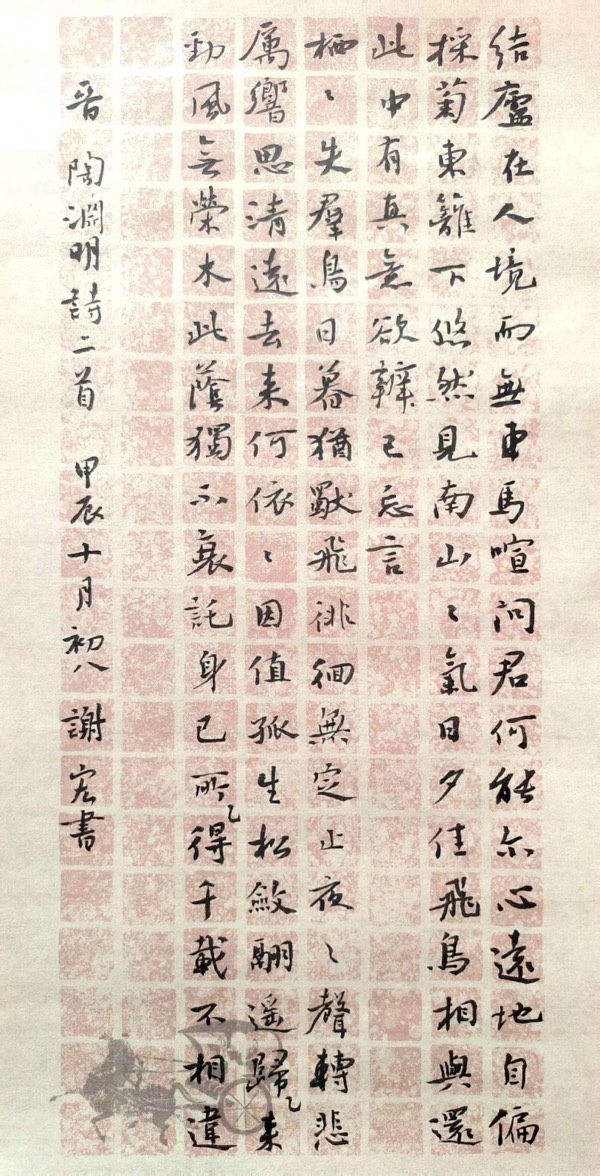 結廬在人境而無車馬喧問君何能尔心遠地自偏
採菊東籬下悠然見南山〻氣日夕佳飛鳥相與還
此中有真意欲辯已忘言
栖〻失羣鳥日暮猶獸飛徘徊無定止夜〻聲轉悲
厲響思清遠去来何依〻因值孤生松斂翮遥歸来
勁風無榮木此蔭獨不衰託身已所得千載不相違
晋 陶淵明詩二首 甲辰十月初八 謝宏書